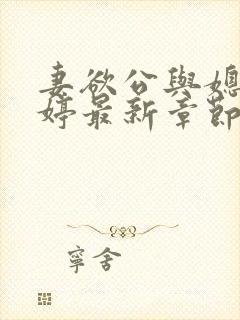 妻欲公與媳
婷最新章節
寧舍